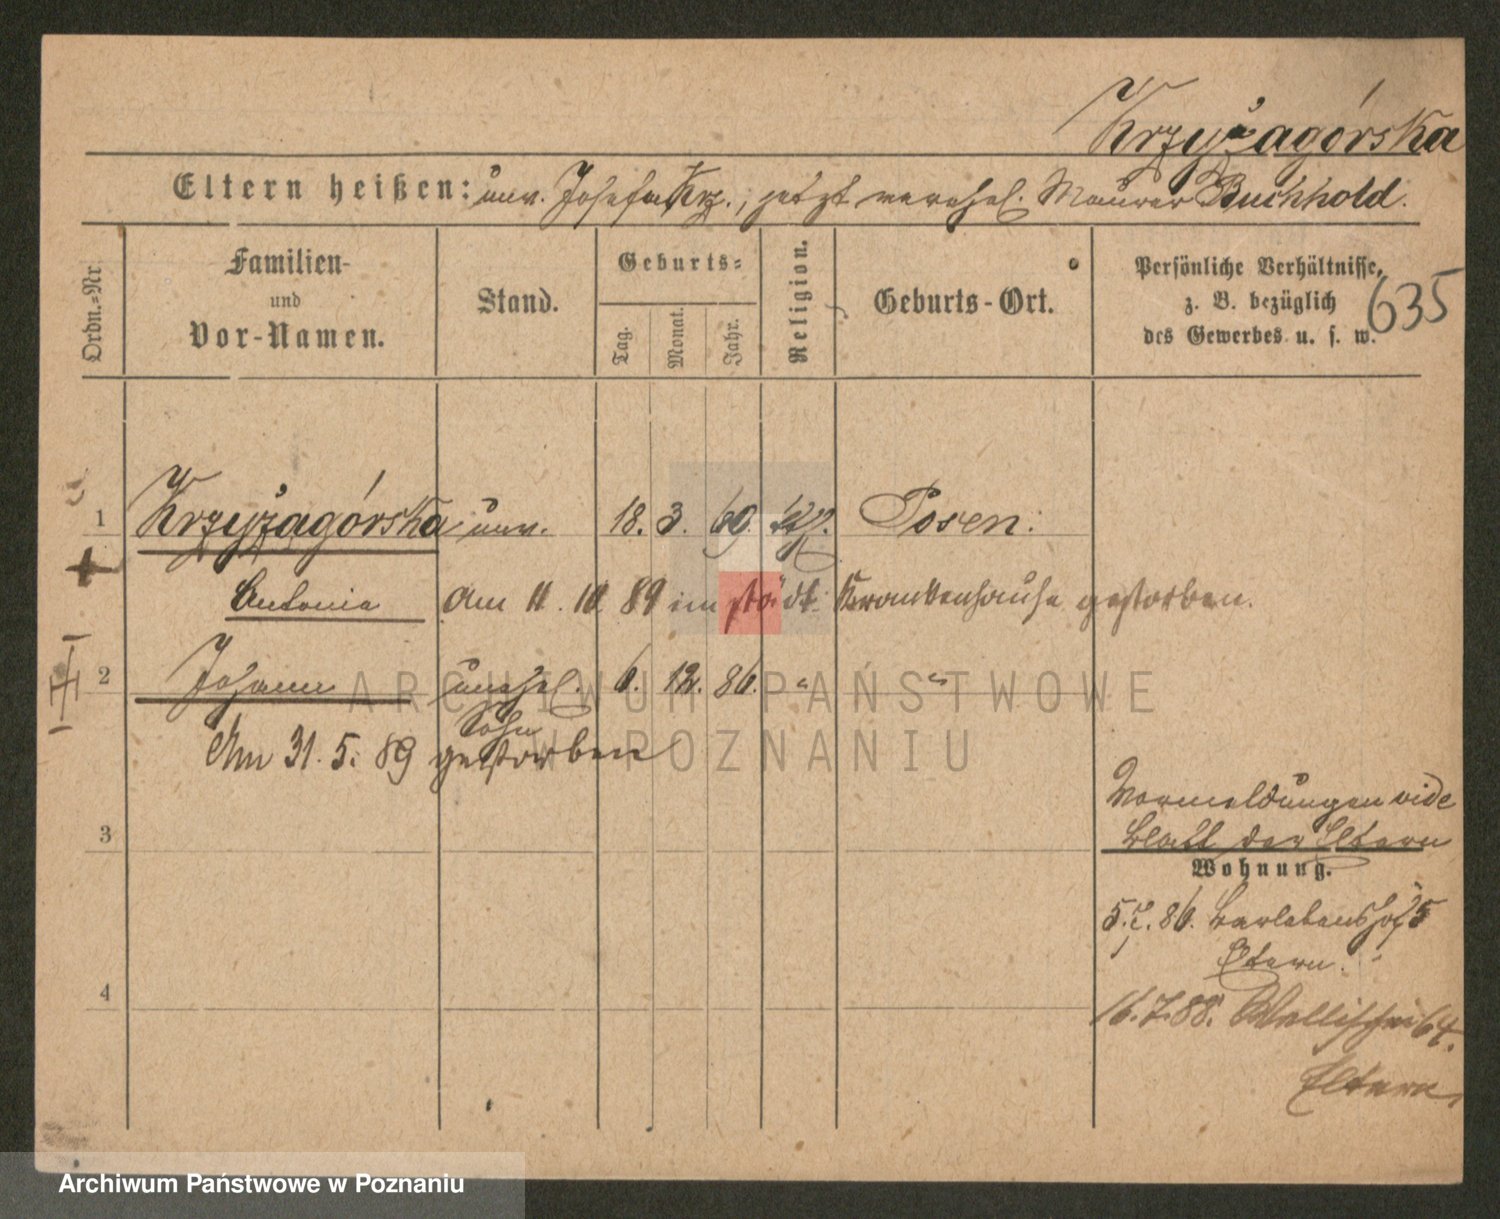 Krzyżagórska
Eltern heißen: unv. Josefa Krz., jetzt verehel. Maurer Buchhold.
Ordn.=Nr.
Familien-
und
Vor-Namen.
Stand.
Geburts=
Tag.
Monat.
Jahr.
Religion.
Geburts-Ort.
Persönliche Verhältnisse,
z. B. bezüglich
des Gewerbes u. s. w.
635
1 Krzyżagórska unv. 18. 3. 69. Posen.
Antonie am 11. 10. 89 im städt. Krankenhause gestorben.
2 Johann unehel. 6. 12. 86. " "
Sohn
Am 31. 5. 89 gestorben
3
Vormeldungen vide
Blatt der Eltern
Wohnung.
5. 7. 86. Berlebenshof 5
Eltern.
4
16. 7. 88. Wallischei 64.
Eltern.
ARCHIWUM PAŃSTWOWE
W POZNANIU
Archiwum Państwowe w Poznaniu